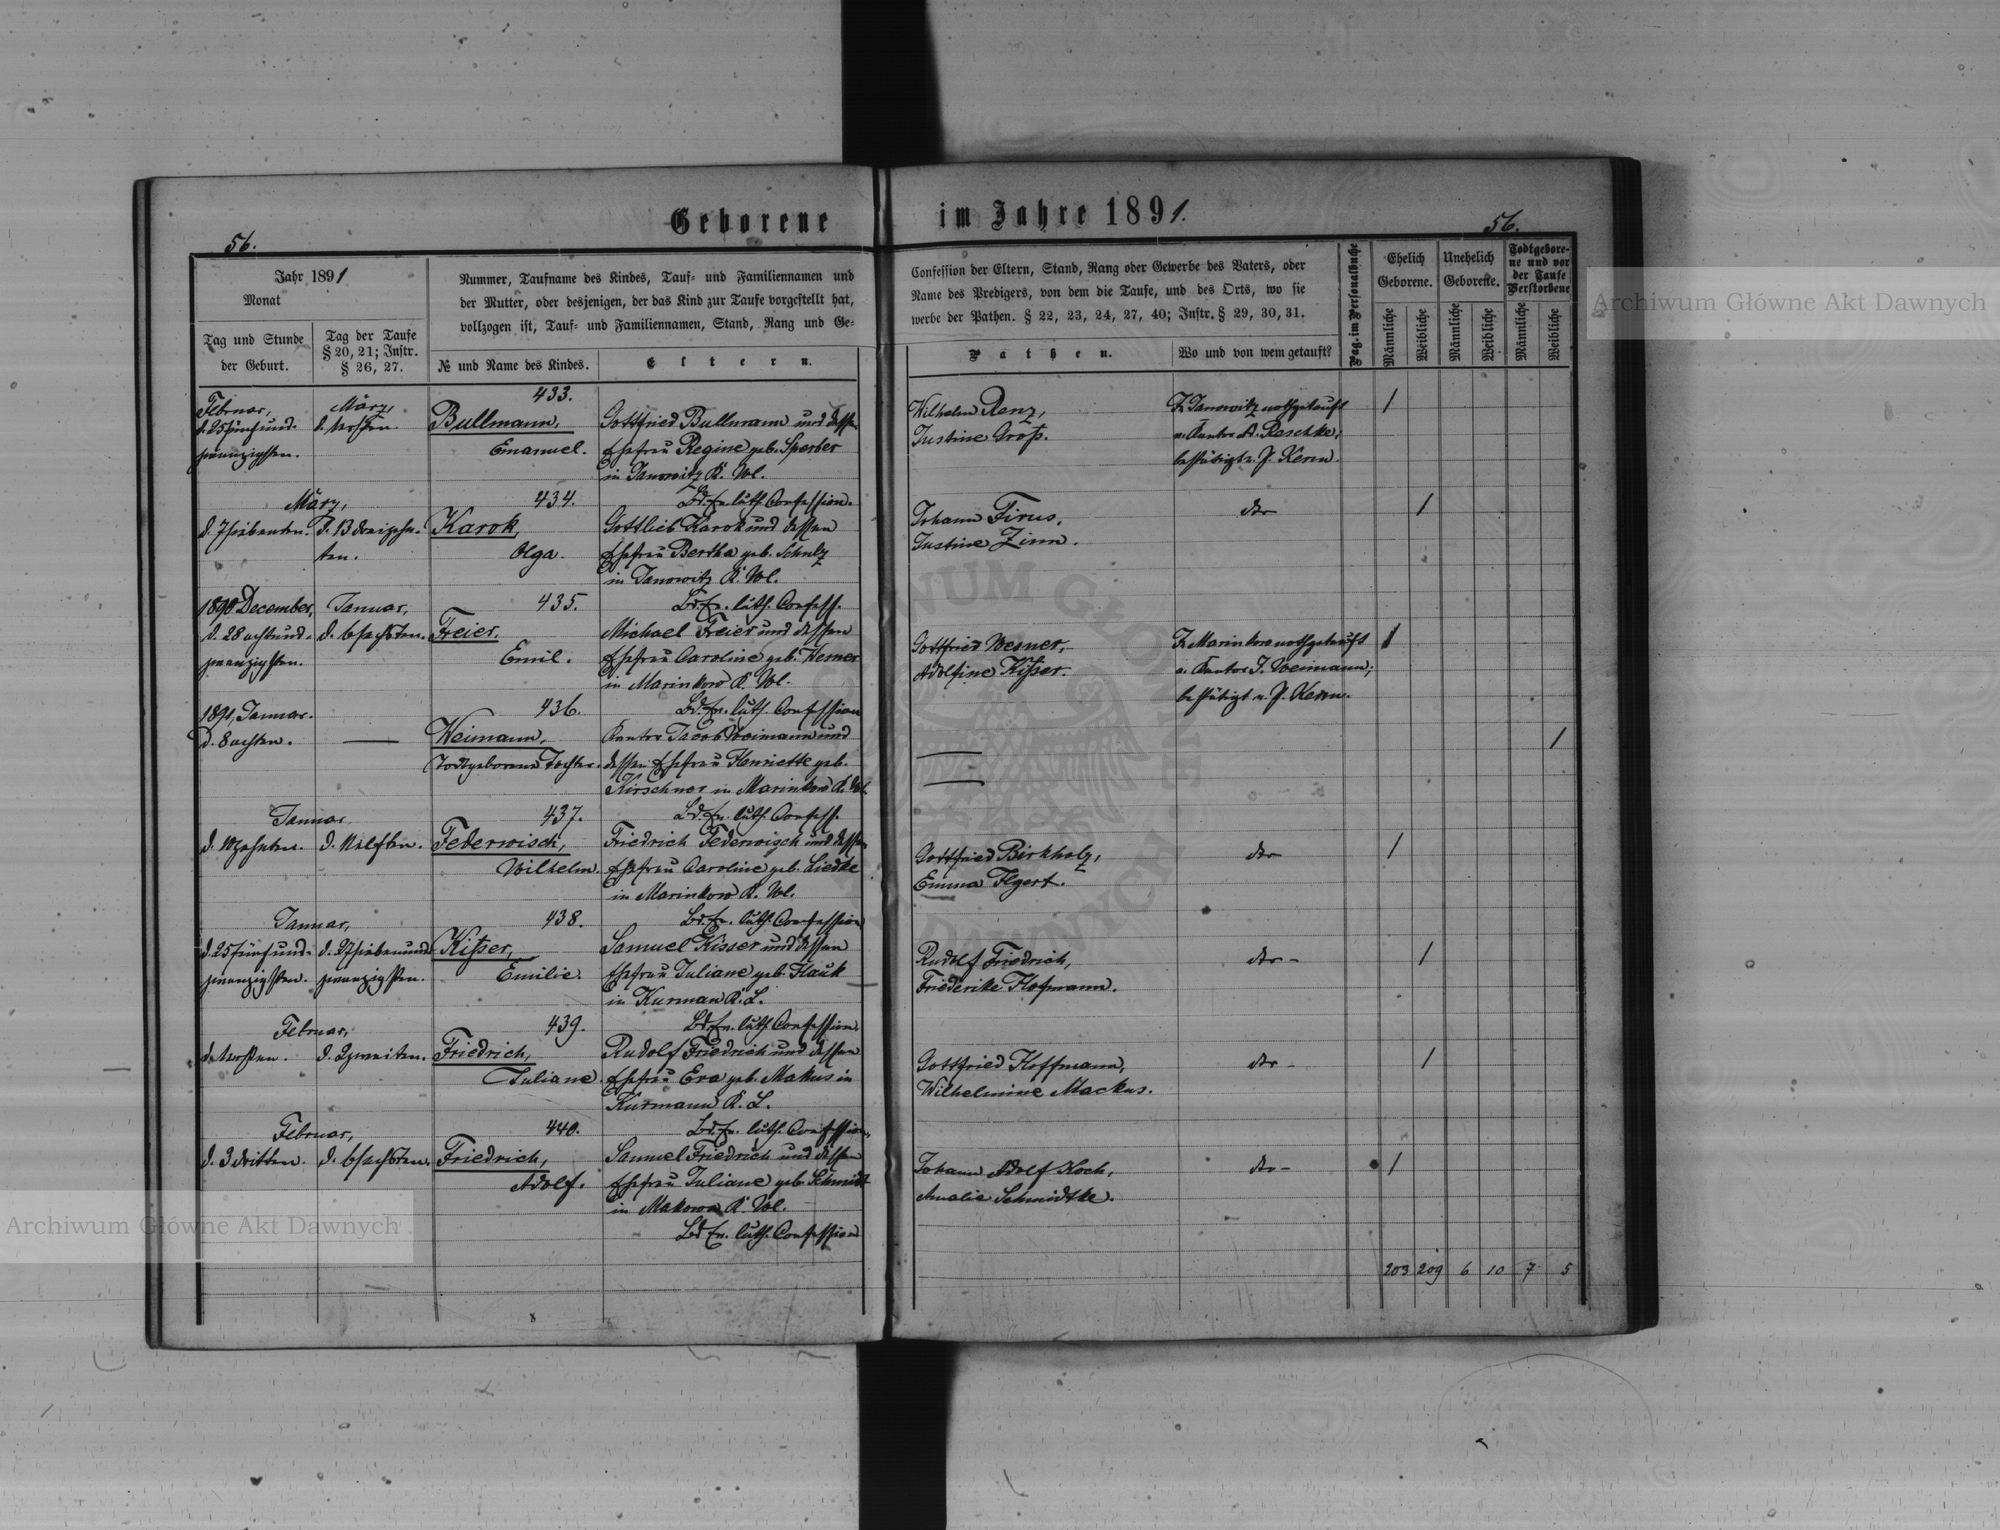 Geborene im Jahre 1891.
56.
56.
Jahr 1891
Monat
Tag und Stunde
der Geburt.
Tag der Taufe
§ 20, 21; Instr.
§ 26, 27.
Nummer, Taufname des Kindes, Tauf- und Familiennamen und
der Mutter, oder desjenigen, der das Kind zur Taufe vorgestellt hat,
vollzogen ist, Tauf- und Familiennamen, Stand, Rang und Ge-
№ und Name des Kindes.
Eltern.
Confession der Eltern, Stand, Rang oder Gewerbe des Vaters, oder
Name des Predigers, von dem die Taufe, und des Orts, wo sie
werbe der Pathen. § 22, 23, 24, 27, 40; Instr. § 29, 30, 31.
Pathen.
Wo und von wem getauft?
Pag. im Personalbuche
Ehelich
Geborene.
Unehelich
Geborene.
Todtgebore-
ne und vor
der Taufe
Verstorbene
Männliche
Weibliche
Männliche
Weibliche
Männliche
Weibliche
Februar,
d. 25 fünfund-
zwanzigsten.
März,
d. 1 ersten.
433.
Bullmann,
Emanuel.
Gottfried Bullmann und dessen
Ehefrau Regine geb. Sperber
in Janowitz K. Wl.
Bd. Ev. luth. Confession.
Wilhelm Renz,
Justine Groß.
Z. Janowitz nothgetauft
v. Kantor A. Reschke;
bestätigt v. P. Kern.
1
März,
d. 7 siebenten.
d. 13 dreizehn-
ten.
434.
Karok,
Olga.
Gottlieb Karok und dessen
Ehefrau Bertha geb. Schulz
in Janowitz K. Wl.
Bd. Ev. luth. Confess.
Johann Firus,
Justine Zinn.
dto
1
1890 December,
d. 28 achtund-
zwanzigsten.
Januar,
d. 6 sechsten.
435.
Freier,
Emil.
Michael Freier und dessen
Ehefrau Caroline geb. Werner
in Marinkow K. Wl.
Bd. Ev. luth. Confession
Gottfried Werner,
Adolfine Kißer.
Z. Marinkow nothgetauft
v. Kantor J. Weimann;
bestätigt v. P. Kern.
1
1891, Januar.
d. 8 achten.
436.
Weimann,
Todtgeborene Tochter.
Kantor Jacob Weimann und
dessen Ehefrau Henriette geb.
Kirschner in Marinkow K. Wl.
Bd. Ev. luth. Confess.
1
Januar
d. 10 zehnten.
d. 11 elften.
437.
Federwisch,
Wilhelm.
Friedrich Federwisch und dessen
Ehefrau Caroline geb. Liedke
in Marinkow K. Wl.
Bd. Ev. luth. Confession
Gottfried Birkholz,
Emma Ilgert.
dto
1
Januar,
d. 25 fünfund-
zwanzigsten.
d. 27 siebenund-
zwanzigsten.
438.
Kißer,
Emilie.
Samuel Kisser und dessen
Ehefrau Juliane geb. Hauk
in Kurman K. L.
Bd. Ev. luth. Confession.
Rudolf Friedrich,
Friederike Hofmann.
dto -
1
Februar,
d. 1 ersten.
d. 2 zweiten.
439.
Friedrich,
Juliane.
Rudolf Friedrich und dessen
Ehefrau Eva geb. Makus in
Kurmann K. L.
Bd. Ev. luth. Confession.
Gottfried Hoffmann,
Wilhelmine Mackus.
dto -
1
Februar,
d. 3 dritten.
d. 6 sechsten.
440.
Friedrich,
Adolf.
Samuel Friedrich und dessen
Ehefrau Juliane geb. Schmidt
in Makowa K. Wl.
Bd. Ev. luth. Confession
Johann Adolf Koch,
Amalie Schmidtke.
dto -
1
203 209 6 10 7 5
Archiwum Główne Akt Dawnych
Archiwum Główne Akt Dawnych